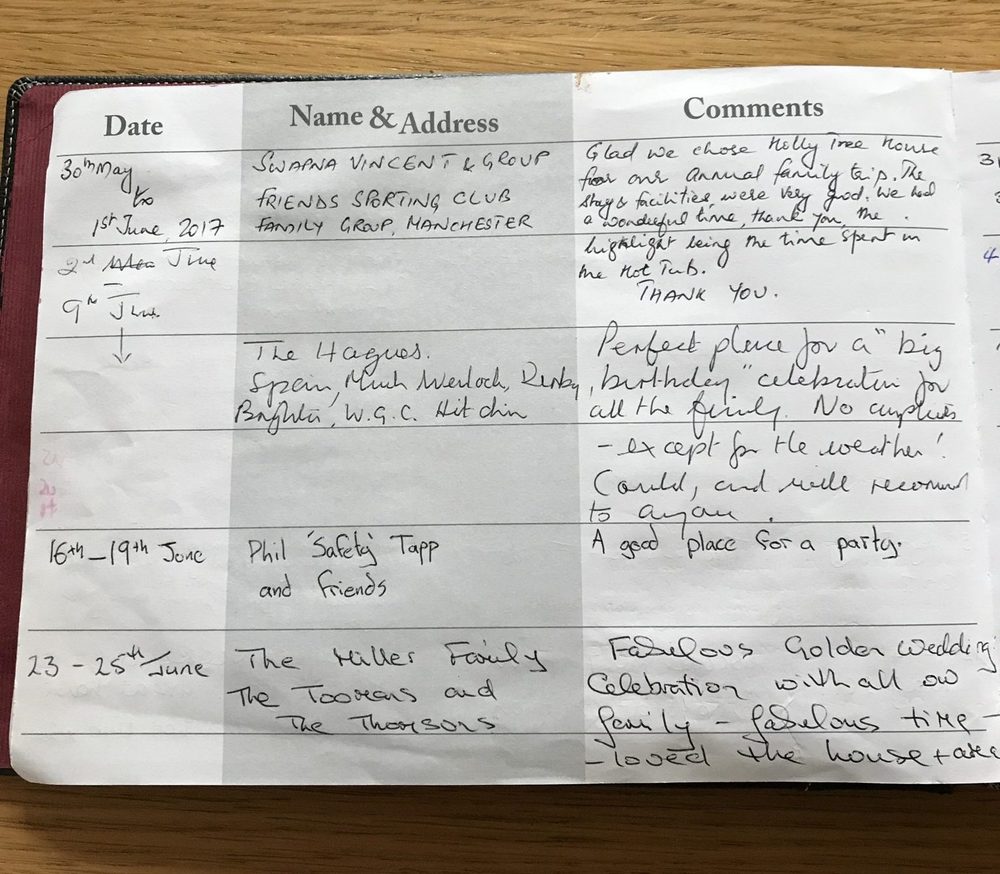 Date Name & Address Comments
30th May
to
1st June, 2017
SWAPNA VINCENT & GROUP
FRIENDS SPORTING CLUB
FAMILY GROUP, MANCHESTER
Glad we chose Holly Tree House
for our annual family trip. The
stay & facilities were very good. We had
a wonderful time, thank you, the
highlight being the time spent in
the Hot Tub.
THANK YOU.
2nd June
9th June
The Hagues.
Spain, Much Wenlock, Derby,
Brighton, W.G.C. Hitchin
Perfect place for a "big
birthday" celebration for
all the family. No complaints
- except for the weather!
Could, and will recommend
to anyone.
16th-19th June
Phil 'Safety' Tapp
and friends
A good place for a party.
23 - 25th June
The Miller Family
The Toomans and
The Thomsons
Fabulous Golden Wedding
Celebration with all our
family - fabulous time -
- loved the house + area